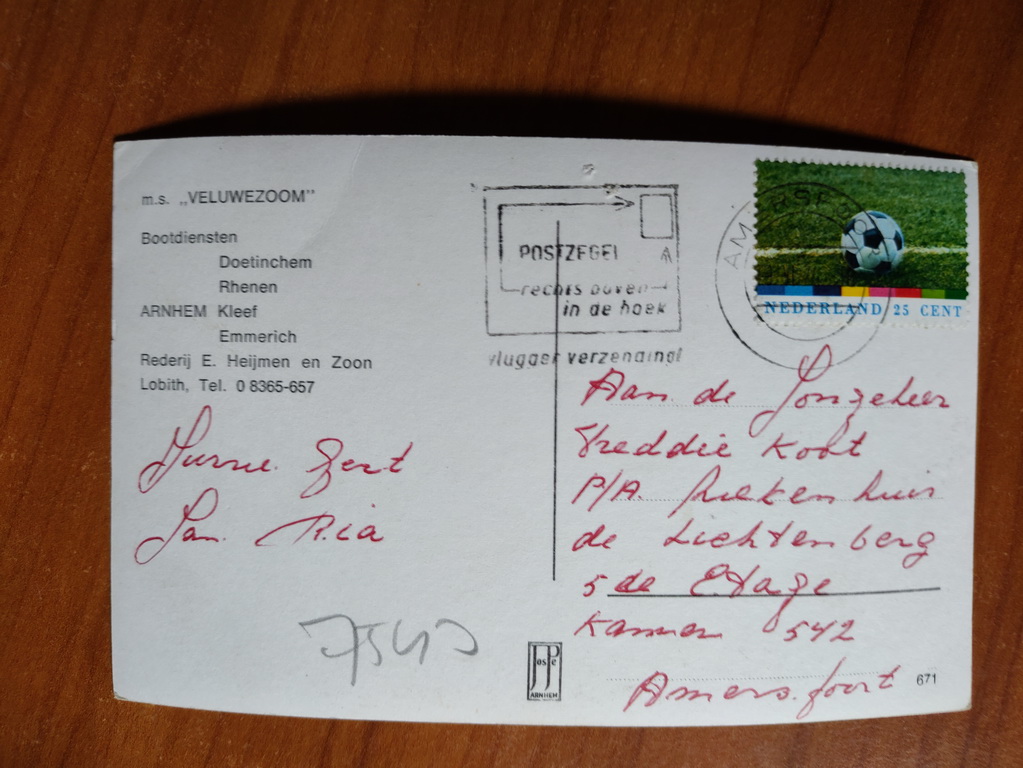 m.s. „VELUWEZOOM"
Bootdiensten
Doetinchem
Rhenen
ARNHEM Kleef
Emmerich
Rederij E. Heijmen en Zoon
Lobith, Tel. 0 8365-657
POSTZEGEL
rechts boven
in de hoek
vlugger verzending!
AMERSFOORT
NEDERLAND 25 CENT
Gert
Jan Ria
Aan de Jongeheer
Freddie Koot
P/A. Ziekenhuis
de Lichtenberg
5de Etage
Kamer 542
Amersfoort
7543
JosPe
ARNHEM
671